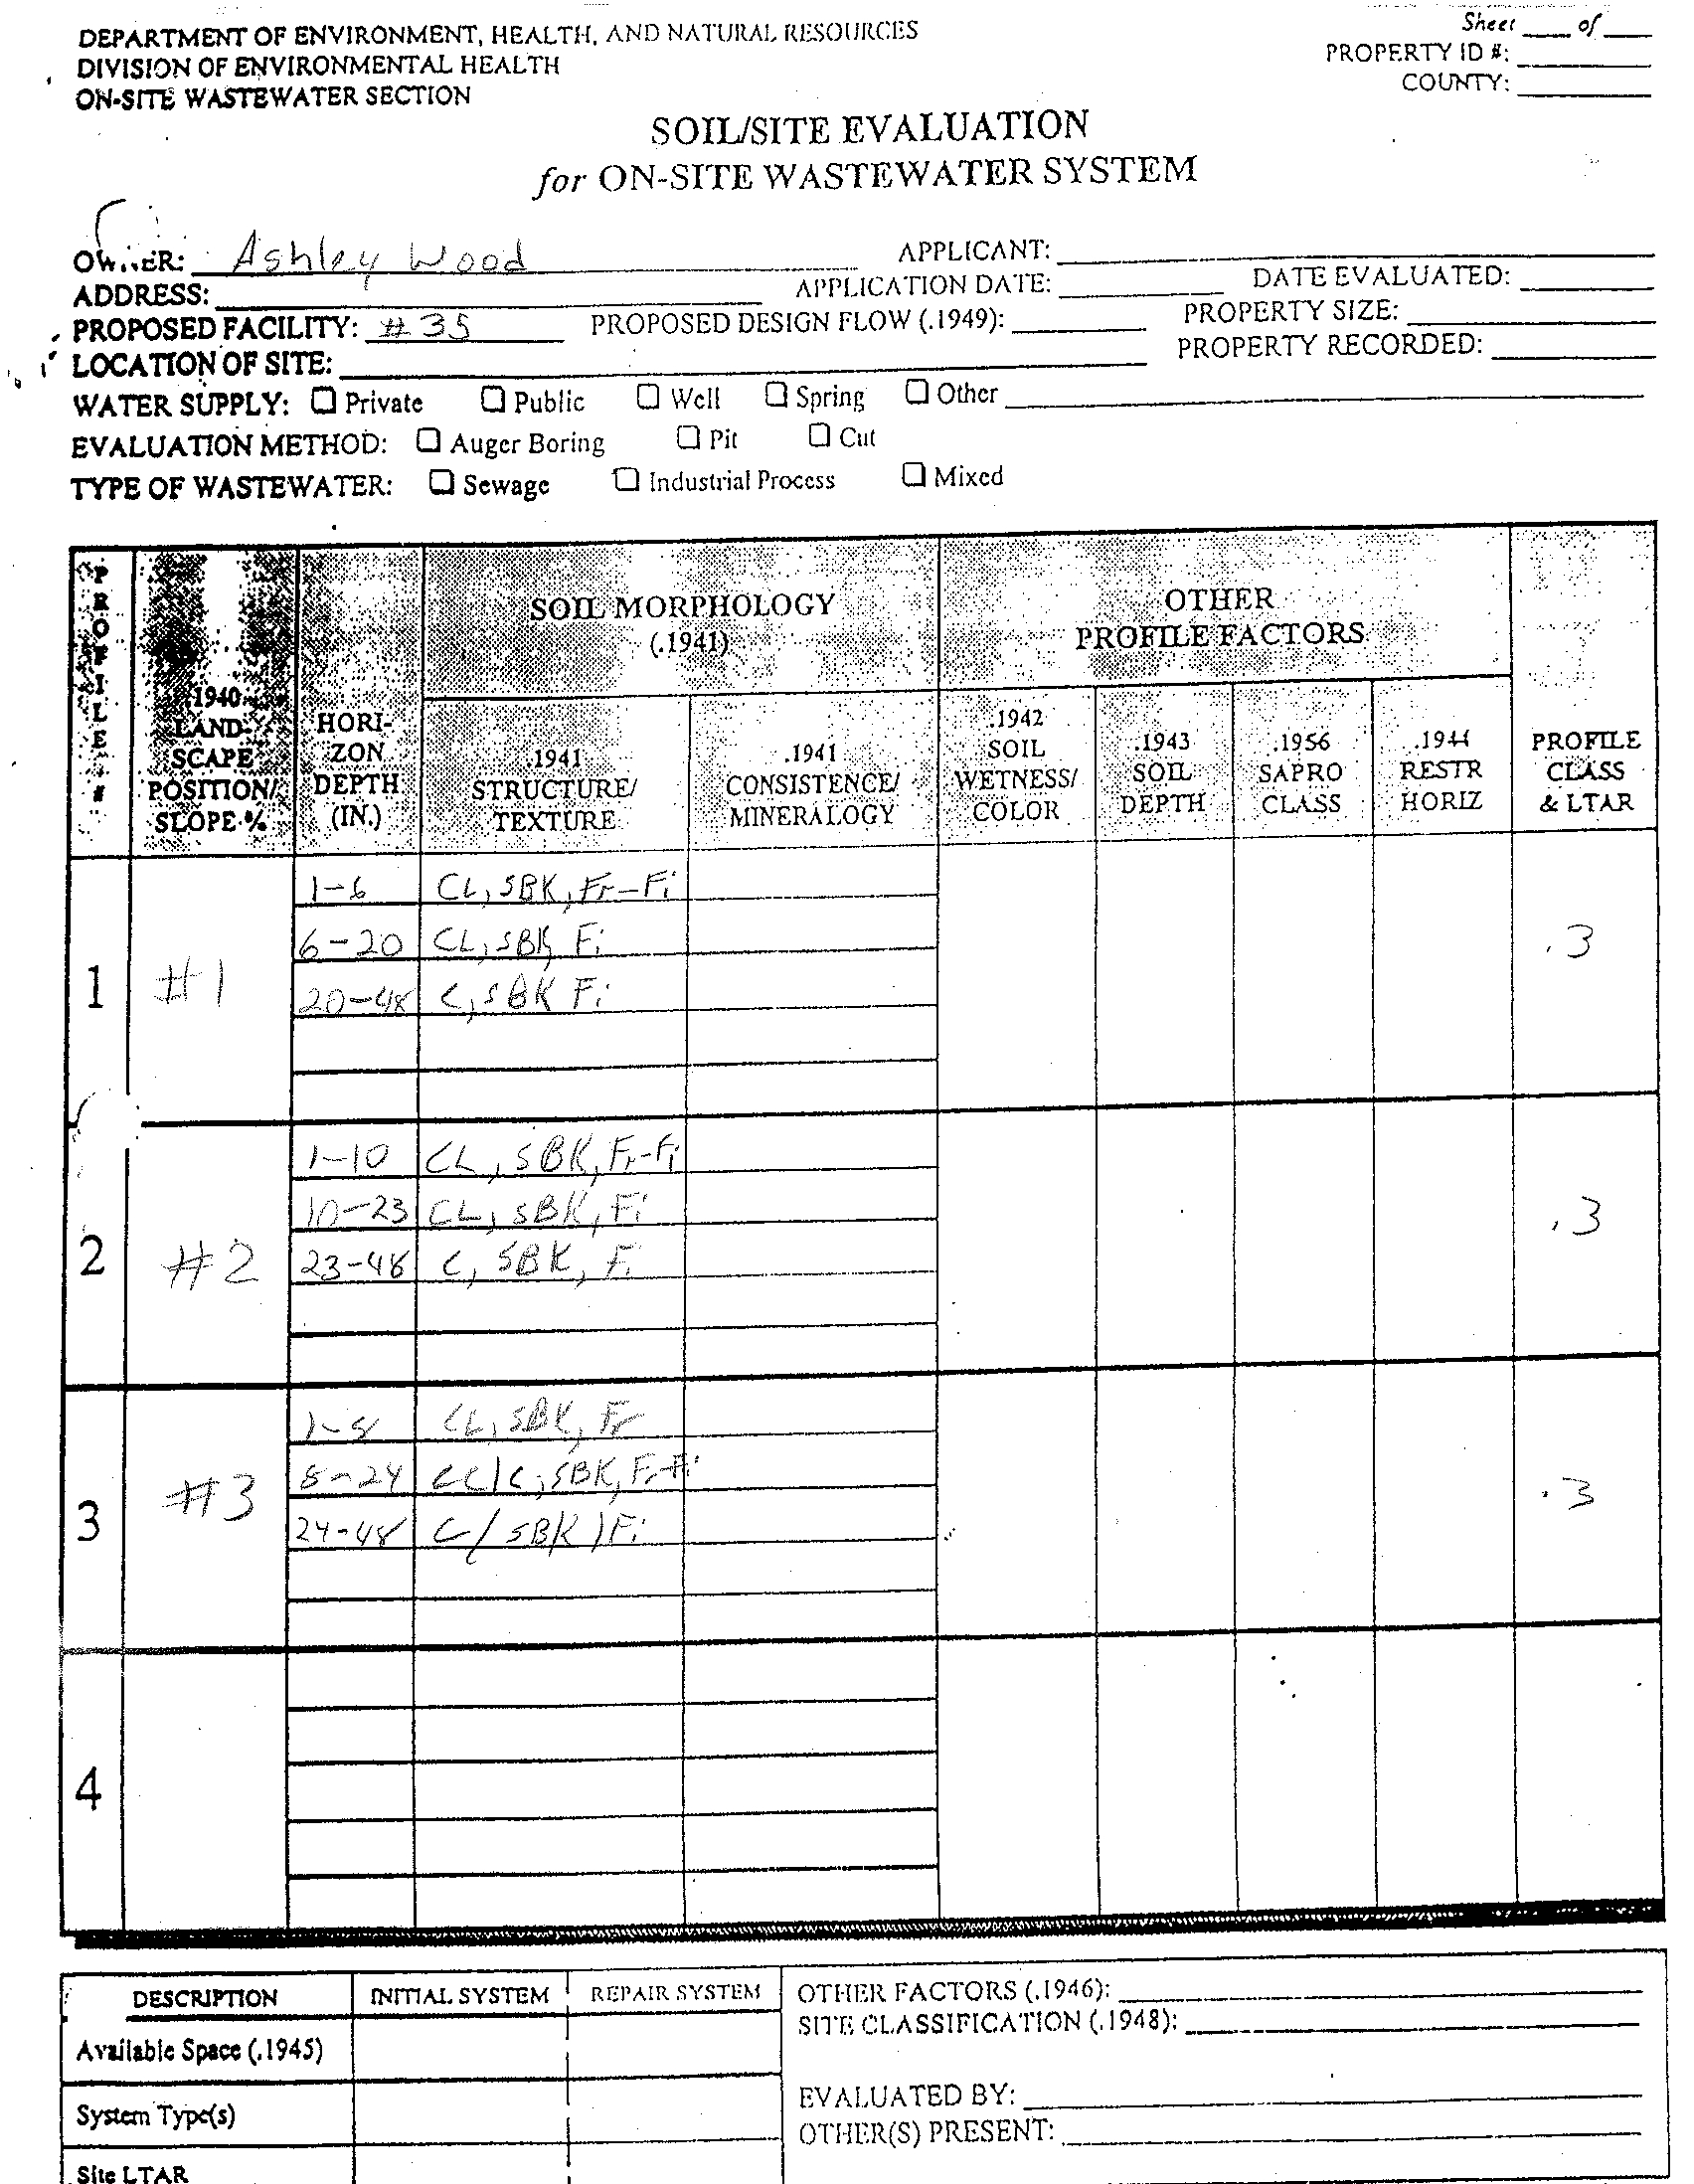 DEPARTMENT OF ENVIRONMENT, HEALTH, AND NATURAL RESOURCES
DIVISION OF ENVIRONMENTAL HEALTH
ON-SITE WASTEWATER SECTION
Sheet ___ of ___
PROPERTY ID #:
COUNTY:
SOIL/SITE EVALUATION
for ON-SITE WASTEWATER SYSTEM
OWNER: Ashley Wood
APPLICANT:
ADDRESS:
APPLICATION DATE:
DATE EVALUATED:
PROPOSED FACILITY: #35
PROPOSED DESIGN FLOW (.1949):
PROPERTY SIZE:
LOCATION OF SITE:
PROPERTY RECORDED:
WATER SUPPLY: ☐ Private ☐ Public ☐ Well ☐ Spring ☐ Other
EVALUATION METHOD: ☐ Auger Boring ☐ Pit ☐ Cut
TYPE OF WASTEWATER: ☐ Sewage ☐ Industrial Process ☐ Mixed
PROFILE #
.1940 LAND-SCAPE POSITION/ SLOPE %
HORI-ZON DEPTH (IN.)
SOIL MORPHOLOGY (.1941)
.1941 STRUCTURE/ TEXTURE
.1941 CONSISTENCE/ MINERALOGY
OTHER PROFILE FACTORS
.1942 SOIL WETNESS/ COLOR
.1943 SOIL DEPTH
.1956 SAPRO CLASS
.1944 RESTR HORIZ
PROFILE CLASS & LTAR
1 #1
1-6 CL, SBK, Fr-Fi
6-20 CL, SBK Fi
20-48 C, SBK Fi
.3
2 #2
1-10 CL, SBK, Fr-Fi
10-23 CL, SBK, Fi
23-48 C, SBK, Fi
.3
3 #3
1-8 CL, SBK, Fr
8-24 CL/C, SBK, Fr-Fi
24-48 C/ SBK, Fi
.3
4
DESCRIPTION INITIAL SYSTEM REPAIR SYSTEM
Available Space (.1945)
System Type(s)
Site LTAR
OTHER FACTORS (.1946):
SITE CLASSIFICATION (.1948):
EVALUATED BY:
OTHER(S) PRESENT: